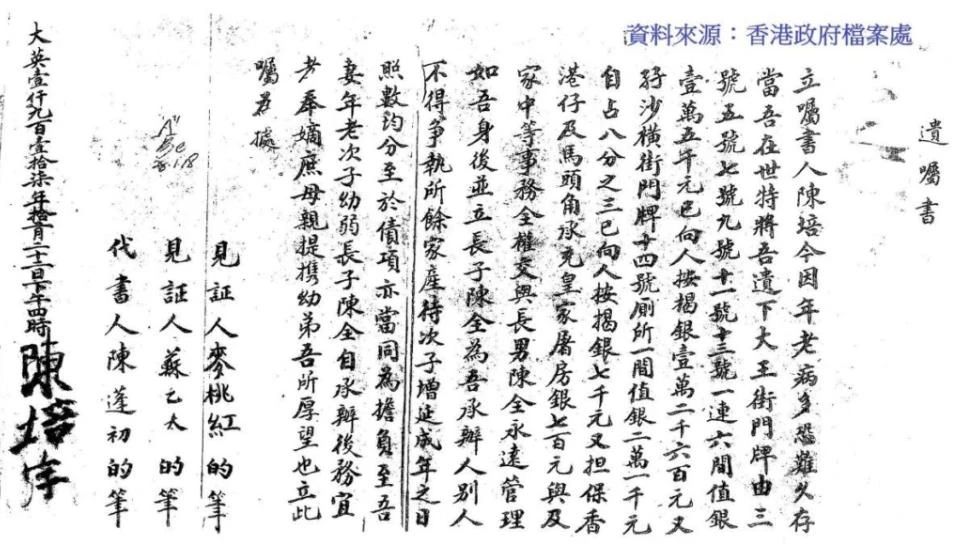 資料來源：香港政府檔案處
遺囑書
立囑書人陳培今因年老病多恐難久存
當吾在世特將吾遺下大王街門牌由三
號五號七號九號十一號十三號一連六間值銀
壹萬五千元已向人按揭銀壹萬二千六百元又
孖沙橫街門牌十四號厠所一間值銀二萬一千元
自占八分之三已向人按揭銀七千元又担保香
港仔及馬頭角承充皇家屠房銀七百元與及
家中等事務全權交與長男陳全永遠管理
如吾身後並立長子陳全為吾承辦人別人
不得争執所餘家產待次子增延成年之日
照數均分至於債項亦當同為擔負至吾
妻年老次子幼弱長子陳全自承辦後務宜
孝奉嫡庶母親提携幼弟吾所厚望也立此
囑為據
見証人麥桃紅的筆
見証人蘇乙太的筆
代書人陳蓮初的筆
大英壹仟九百壹拾柒年拾月二十二日下午四時
陳培字